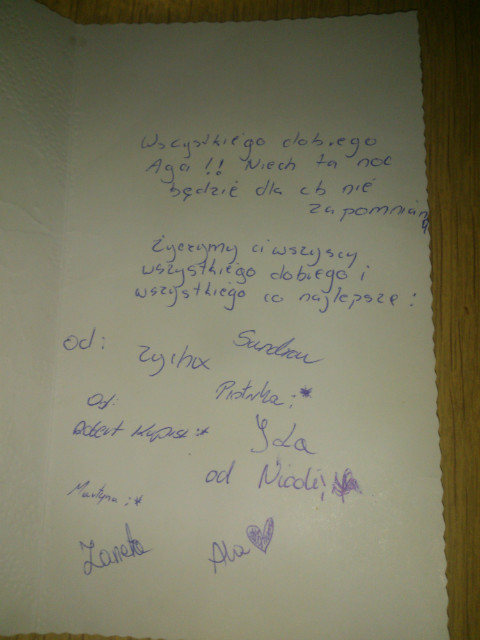 Wszystkiego dobrego
Aga !! Niech ta noc
będzie dla cb nie
zapomnian
Życzymy ci wszyscy
wszystkiego dobrego i
wszystkiego co najlepsze :
od: Zychux Sandrau
Od: Piotrka :*
Robert :* Iza
od Nicoli
Martyna :*
Żaneta Ala